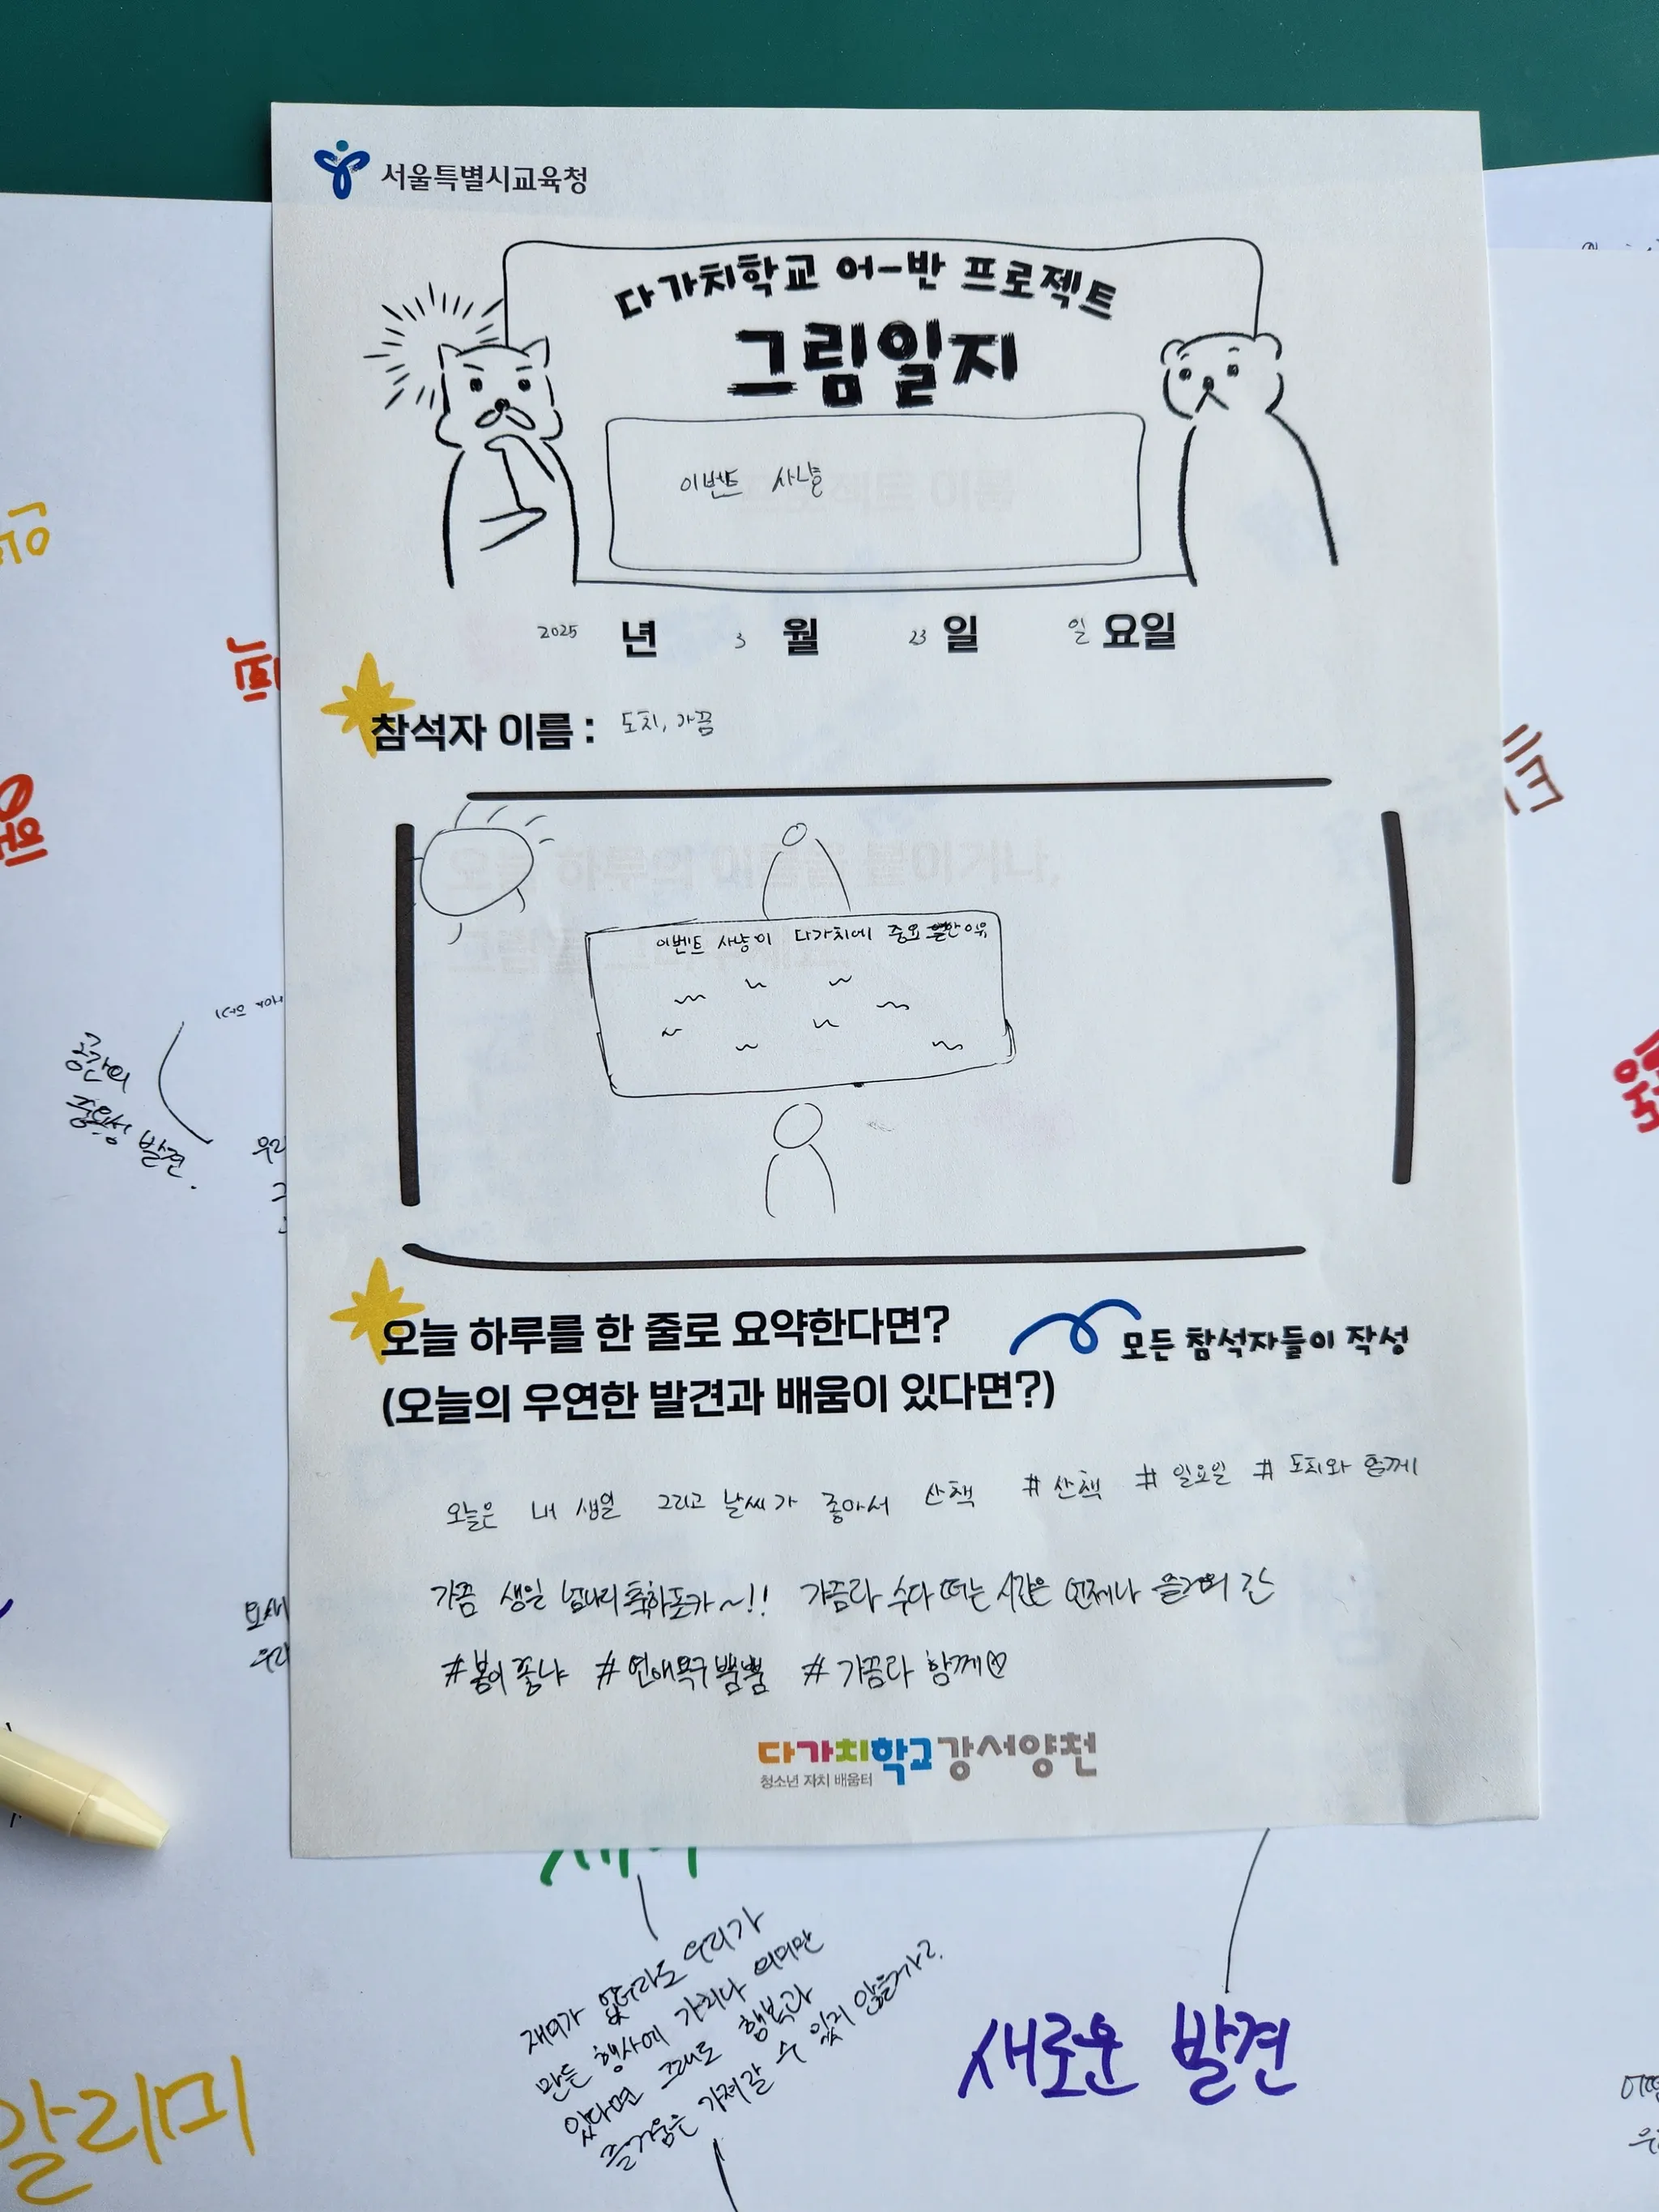 서울특별시교육청
다가치학교 어-반 프로젝트
그림일지
이벤트 사냥
2025 년 3 월 23 일 일 요일
참석자 이름 : 도치, 가끔
이벤트 사냥이 다가치에 중요한 이유
오늘 하루를 한 줄로 요약한다면?
모든 참석자들이 작성
(오늘의 우연한 발견과 배움이 있다면?)
오늘은 내 생일 그리고 날씨가 좋아서 산책 #산책 #일요일 #도치와 함께
가끔 생일 넘나리 축하포카~!! 가끔과 수다 떠는 시간은 언제나 즐거워
#봄이 좋냐 #연애욕구뿜뿜 #가끔과 함께
다가치학교 강서양천
청소년 자치 배움터
공간의
중요성 발견.
재미가 없더라도 우리가
만든 행사에 가치나 의미만
있다면 그래도 행복과
즐거움은 가져갈 수 있지 않을까?
새로운 발견
알리미